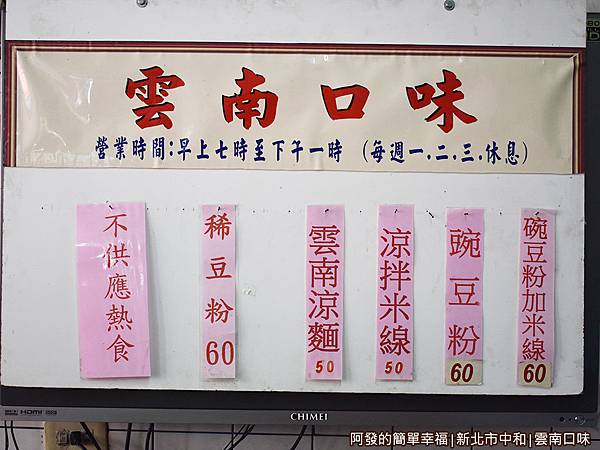 雲南口味
營業時間:早上七時至下午一時 (每週一.二.三.休息)
不供應熱食
稀豆粉60
雲南涼麵50
涼拌米線50
豌豆粉60
碗豆粉加米線60
HDMI
CHIMEI
阿發的簡單幸福|新北市中和|雲南口味